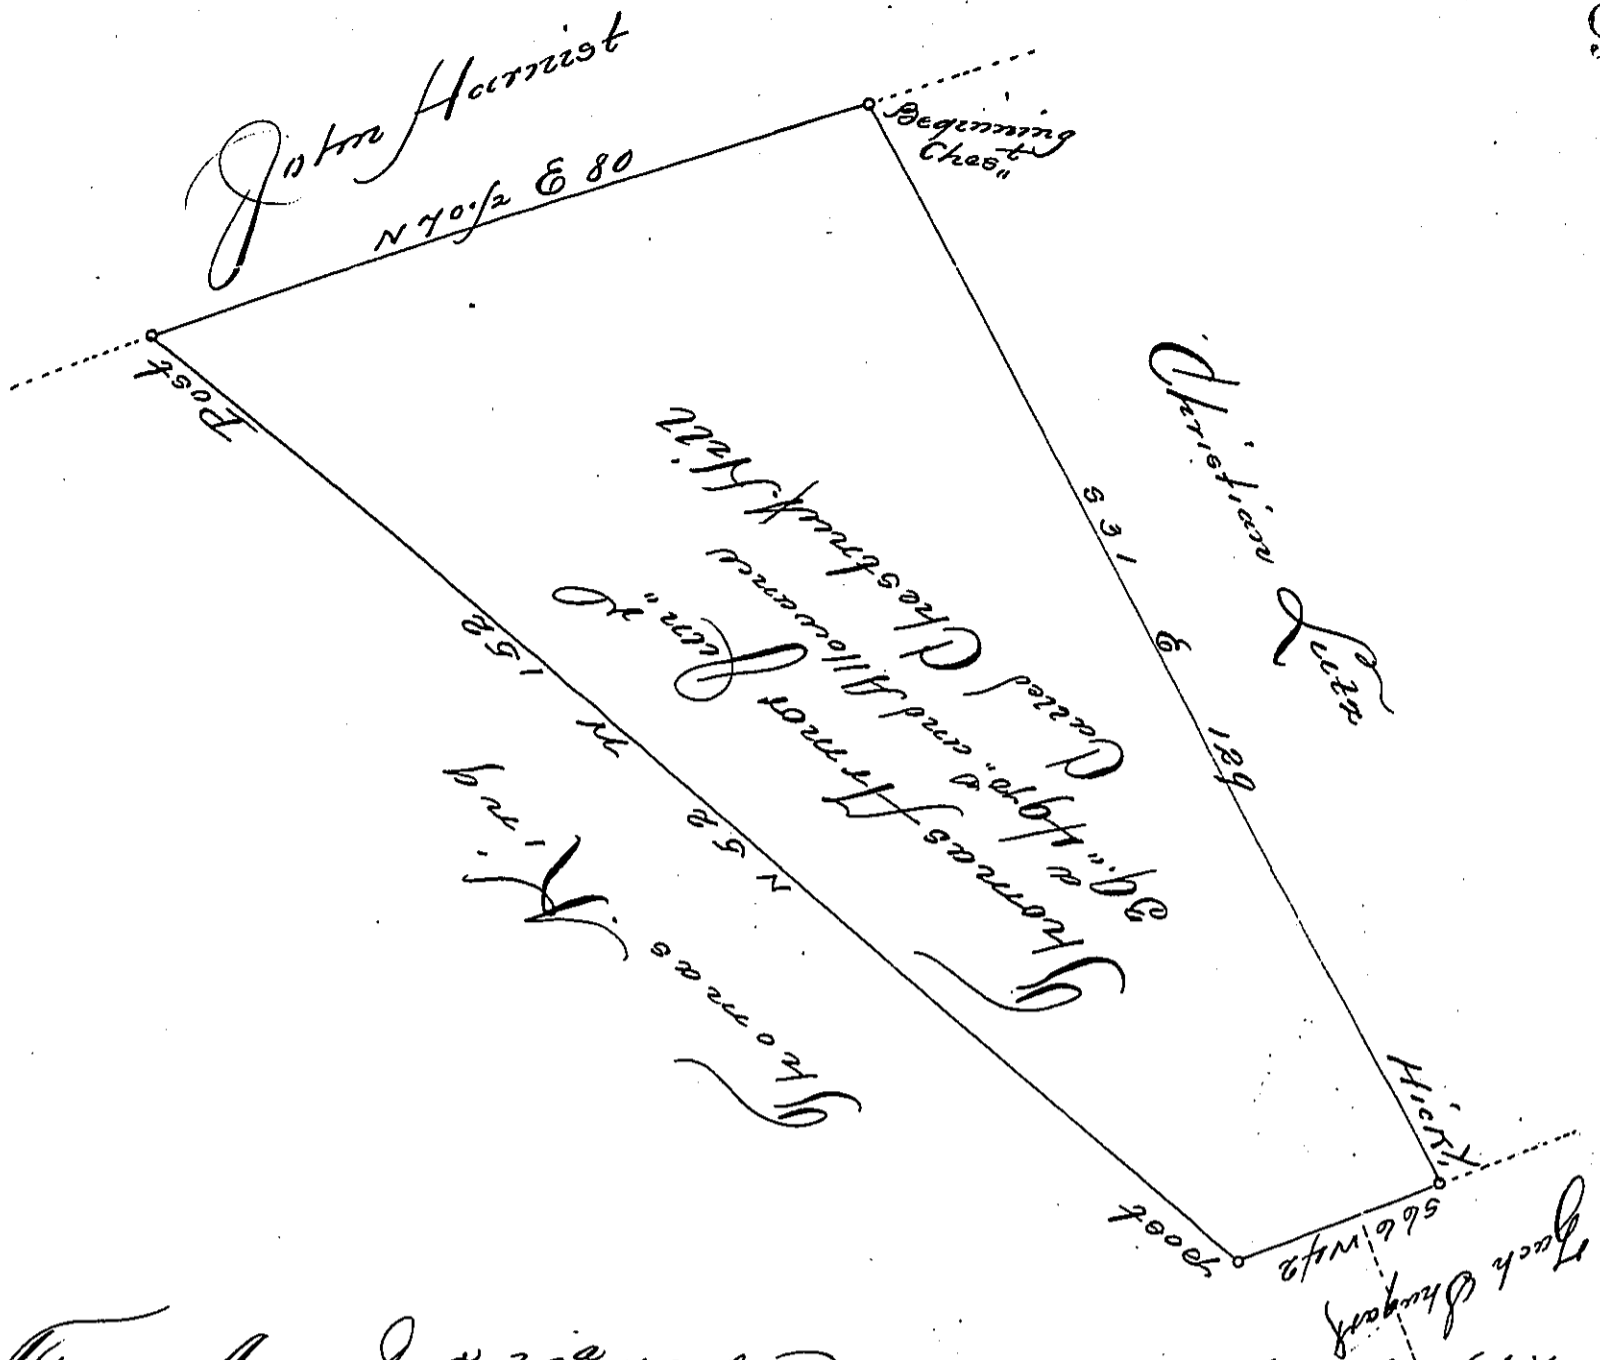 John Harnist
N 70 1/2 E 80
Beginning
Ches."t
Post
Christian Lutz
S 31 E 129
Thomas Armor Jun."r
39."a Hgp."s and Allowance
Called Chestnut Hill
N 52 W 152
Thomas King
Hick'y
post
S66 W42
Zach Shugart